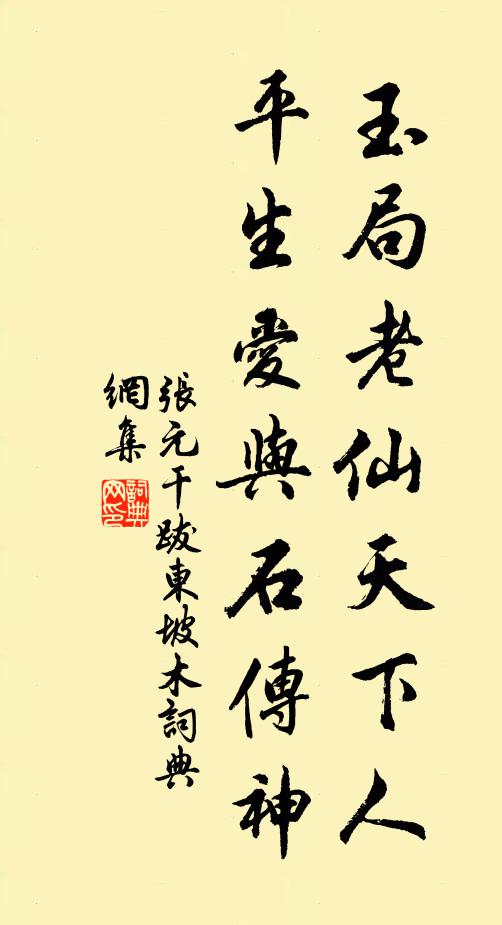 玉局老仙天下人
平生愛與石傳神
張元干跋東坡木詞典
網集
詞典
网印